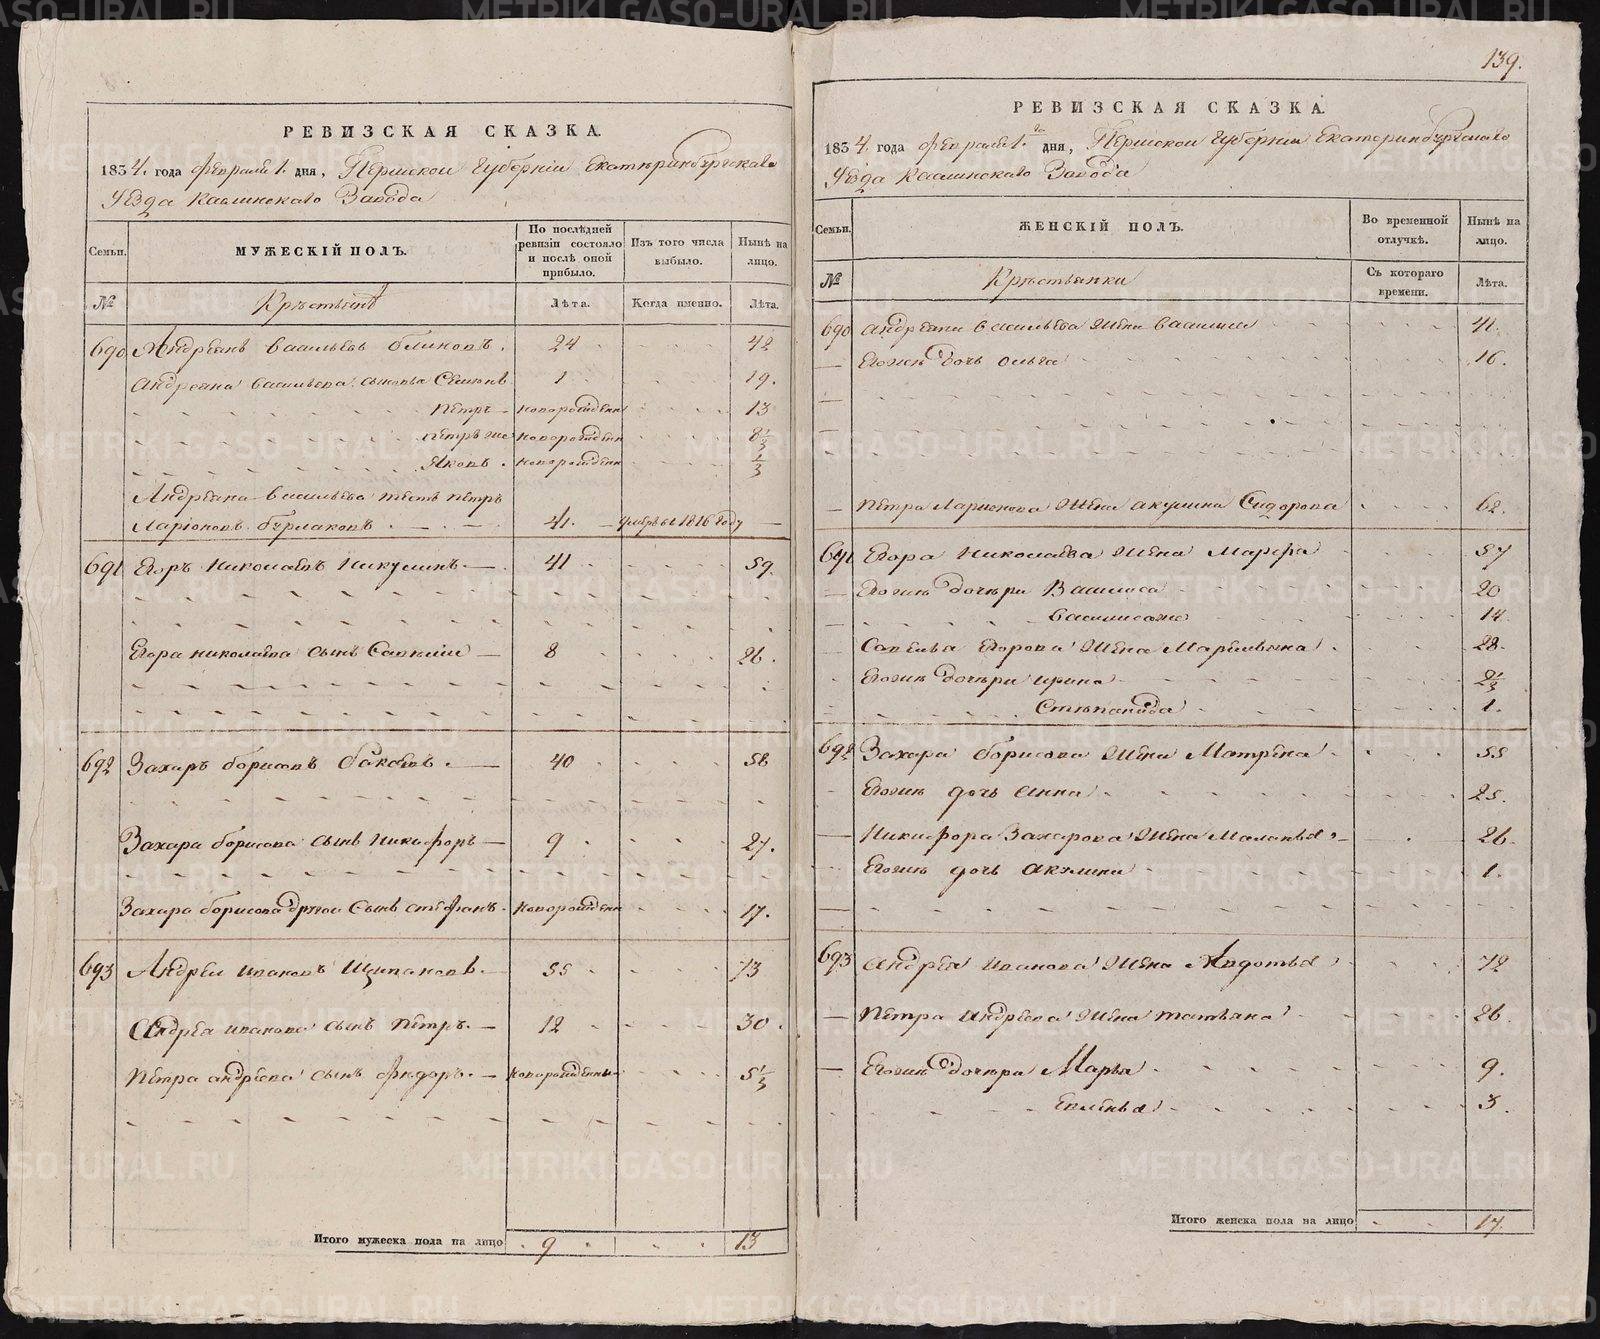 РЕВИЗСКАЯ СКАЗКА.
1834. года Февраля 1. дня, Пермской Губерніи Екатеринбургскаго
Уѣзда Каслинскаго Завода
Семьи.
МУЖЕСКІЙ ПОЛЪ.
По послѣдней ревизіи состояло и послѣ оной прибыло.
Изъ того числа выбыло.
Нынѣ на лицо.
№
Крѣстьянѣ
Лѣта.
Когда именно.
Лѣта.
690 Андреянъ Васильевъ Блиновъ. 24 42
Андреяна Васильева сыновья Семіонъ 1 19.
Петръ новорожденъ 13
Петръ же новорожденъ 8 1/3
Яковъ. новорожденъ 1/3
Андреяна Васильева тесть Петръ
Ларіоновъ Бурлаковъ 41. умеръ въ 1816 году
691 Егоръ Николаевъ Никулинъ 41 59.
Егора Николаева сынъ Савелій 8 26.
692 Захаръ Борисовъ 40 58
Захара Борисова сынъ Никифоръ 9 27.
Захара Борисова другой сынъ Стефанъ. новорожденъ 17.
693 Андрей Ивановъ Щипановъ. 55 73
Андрея Иванова сынъ Петръ. 12 30.
Петра Андреева сынъ Федоръ. новорожденный 5 1/3
Итого мужеска пола на лицо 9 13
139.
РЕВИЗСКАЯ СКАЗКА.
1834. года Февраля 1.го дня, Пермской Губерніи Екатеринбургскаго
Уѣзда Каслинскаго Завода
Семьи.
ЖЕНСКІЙ ПОЛЪ.
Во временной отлучкѣ.
Нынѣ на лицо.
№
Крѣстьянки
Съ котораго времени.
Лѣта.
690 Андреяна Васильева жена Васлиса 41.
Егожъ дочь Ольга 16.
Петра Ларионова жена Акулина Сидорова 62.
691 Егора Николаева жена Марфа 57
Егожъ дочери Васлиса 20
Васлиса же 14
Савелья Егорова жена Маремьяна 28.
Егожъ дочери Ирина 2 1/3
Степанида 1.
692 Захара Борисова жена Матрена 55
Егожъ дочь Анна 25.
Никифора Захарова жена Маланья 26.
Егожъ дочь Акулина 1.
693 Андрея Иванова жена Авдотья 72
Петра Андреева жена Татьяна 26.
Егожъ дочери Марья 9.
3.
Итого женска пола на лицо 17.